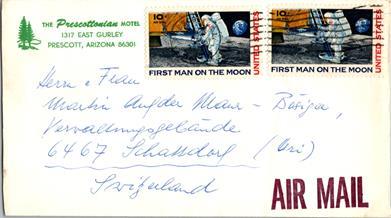 THE Prescottonian MOTEL
1317 EAST GURLEY
PRESCOTT, ARIZONA 86301
10c
FIRST MAN ON THE MOON
UNITED STATES
10c
FIRST MAN ON THE MOON
UNITED STATES
Herr u Frau
Martin Auf der Maur -
Verwaltungsgebäude
6467 Schattdorf (Uri)
Switzerland
AIR MAIL